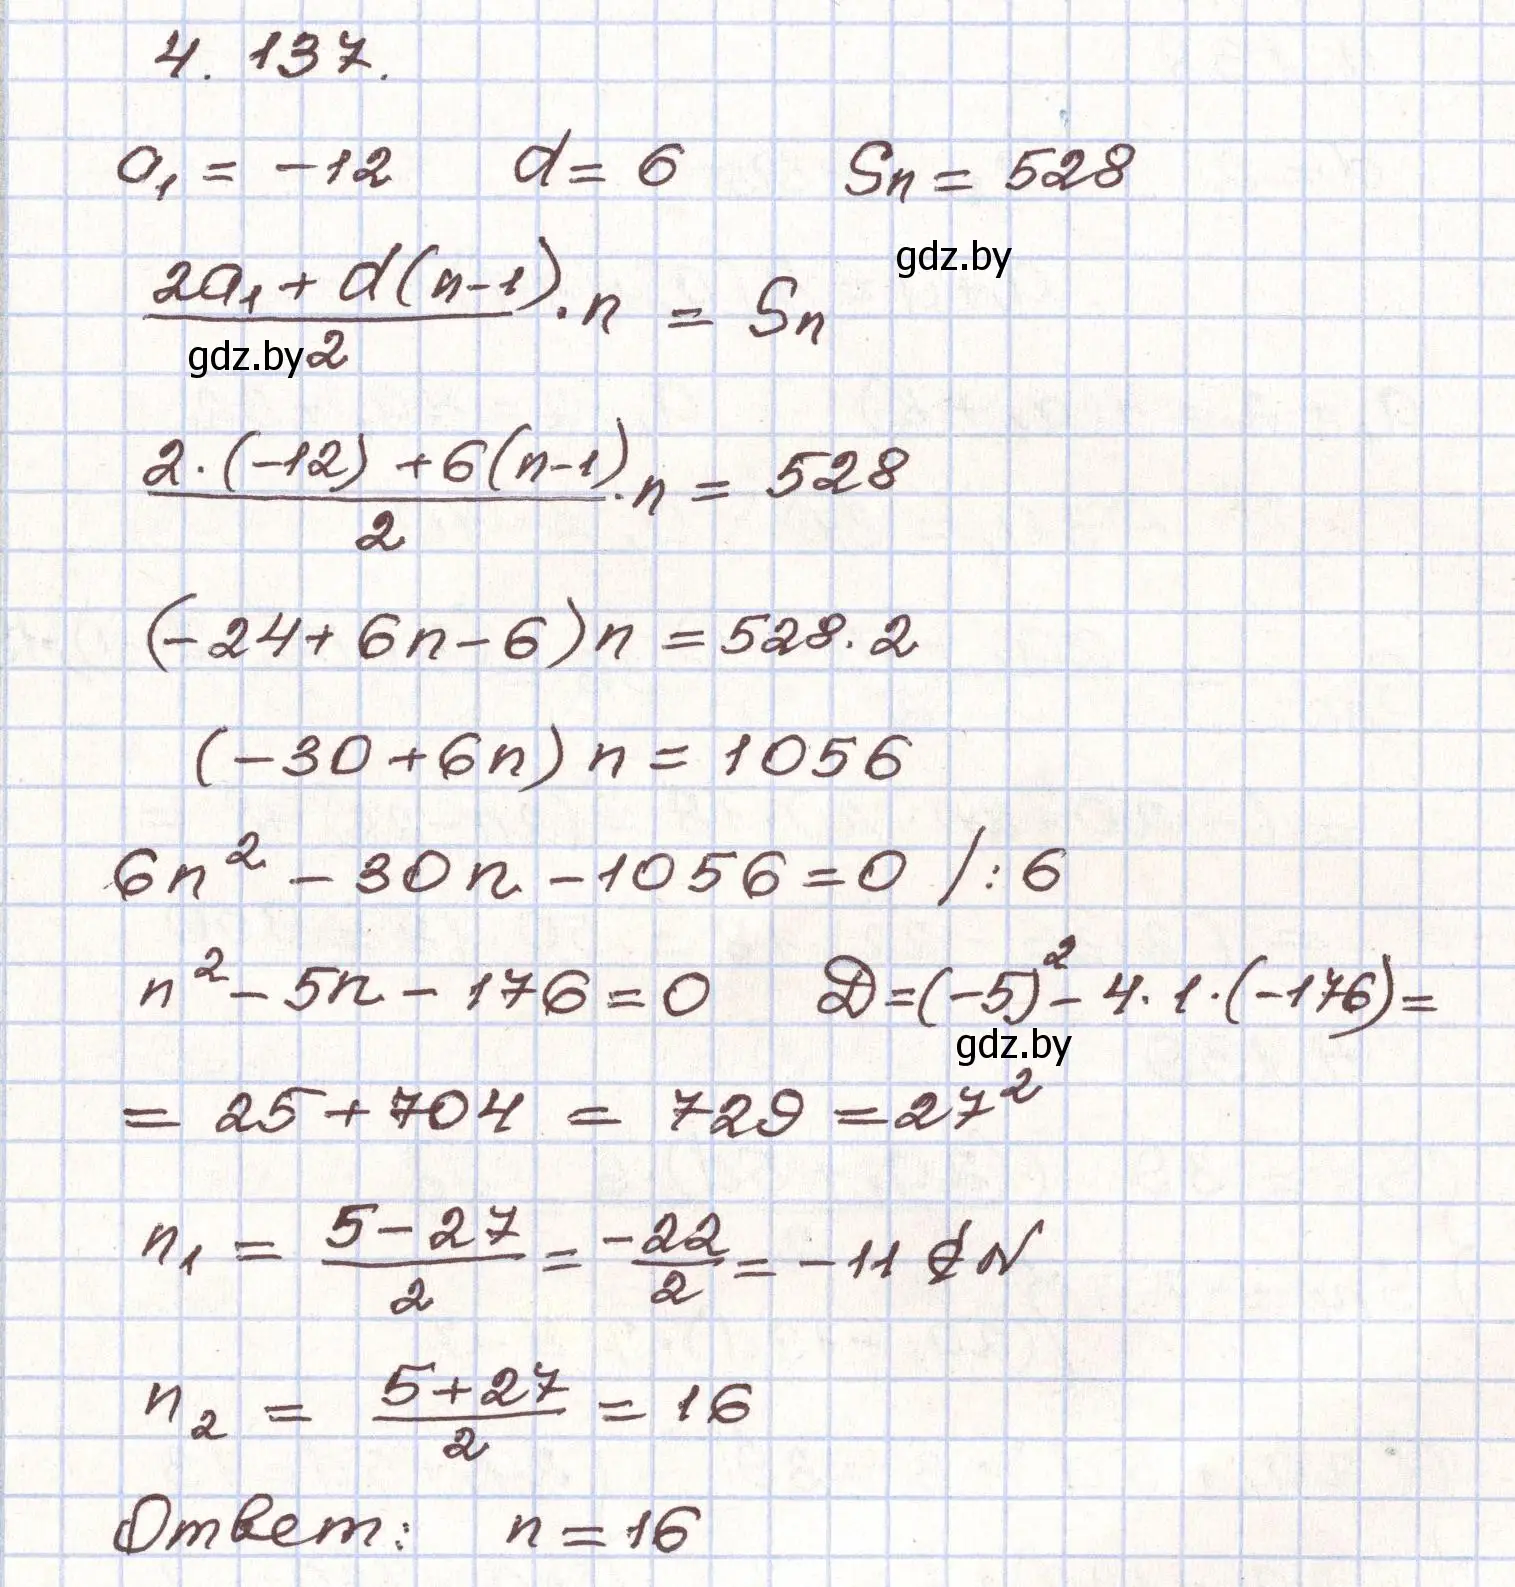 4. 137.
a₁ = -12 d = 6 Sn = 528
gdz.by
(2a₁ + d(n-1))/2 · n = Sn
gdz.by
(2·(-12) + 6(n-1))/2 · n = 528
(-24 + 6n - 6)n = 528·2
(-30 + 6n)n = 1056
6n² - 30n - 1056 = 0 /:6
n² - 5n - 176 = 0 D = (-5)² - 4·1·(-176) =
gdz.by
= 25 + 704 = 729 = 27²
n₁ = (5-27)/2 = -22/2 = -11 ∉ N
n₂ = (5+27)/2 = 16
Ответ: n = 16